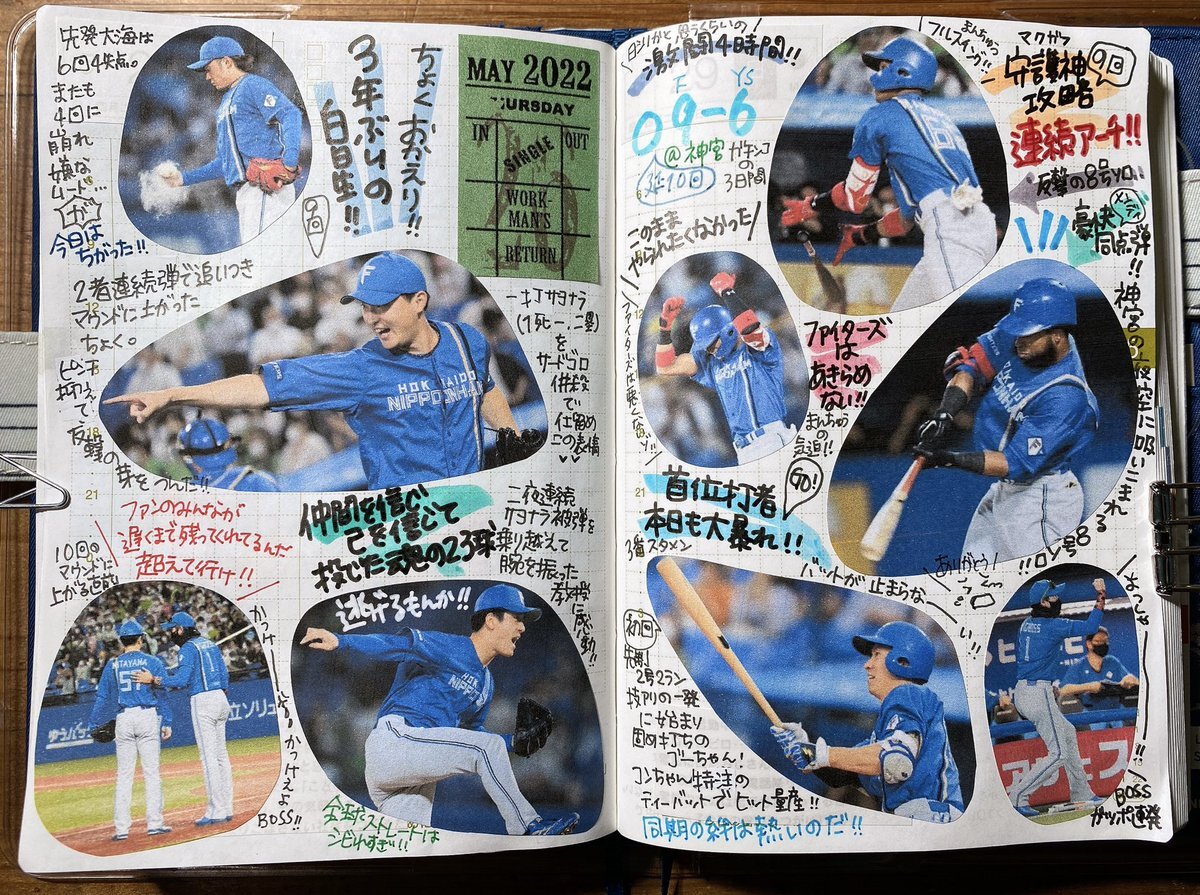 先発大海は
6回4失点。
またも
4回に
崩れ
嫌な
ムード…
が
今日は
ちがった!!
ちょくおかえり!!
3年ぶりの
白星!!
9回
MAY 2022
URSDAY
IN
OUT
SINGLE
WORK-
MAN'S
RETURN
2者連続弾で追いつき
マウンドに上がった
ちょく。
ピンチ
抑えて
反撃の
芽をつんだ!!
HOKKAIDO
NIPPONHAM
一打サヨナラ
(1死一、二塁)
を
サードゴロ
併殺
で
仕留め
この表情
♡♡
ファンのみんなが
遅くまで残ってくれてるんだ
超えて行け!!
仲間を信じ
己を信じて
投じた魂の23球
二夜連続
サヨナラ被弾を
乗り越えて
腕を振った
姿に
感動!!
10回の
マウンドに
上がる直前
KITAYAMA
57
1
ゆうパック
立ソリュ
かっけぇ
かっけぇよ
BOSS!!
逃げるもんか!!
HOK
NIPPON
全球ストレートは
シビれすぎ!!
激闘4時間!!
F YS
9-6
@神宮
延10回
ガチンコ
の
3日間
このまま
やられたくなかった
フルスイング!!
まんちゅう
マクガフ
守護神
攻略
9回
連続アーチ!!
反撃の8号ソロ
豪快
同点弾!!
神宮の夜空に吸いこまれる
8号ソロ!!
ファイターズ
は
あきらめ
ない!!
まんちゅう
の
気迫!!
GO!
首位打者
本日も大暴れ!!
3番スタメン
バットが止まらな〜い!!
ありがとう!
初回
先制
2号2ラン
技アリの一発
に始まり
固め打ちの
ゴーちゃん!
コンちゃん特注の
ティーバットでヒット量産!!
同期の絆は熱いのだ!!
BIGBOSS
1
BOSS
ガッポ連発